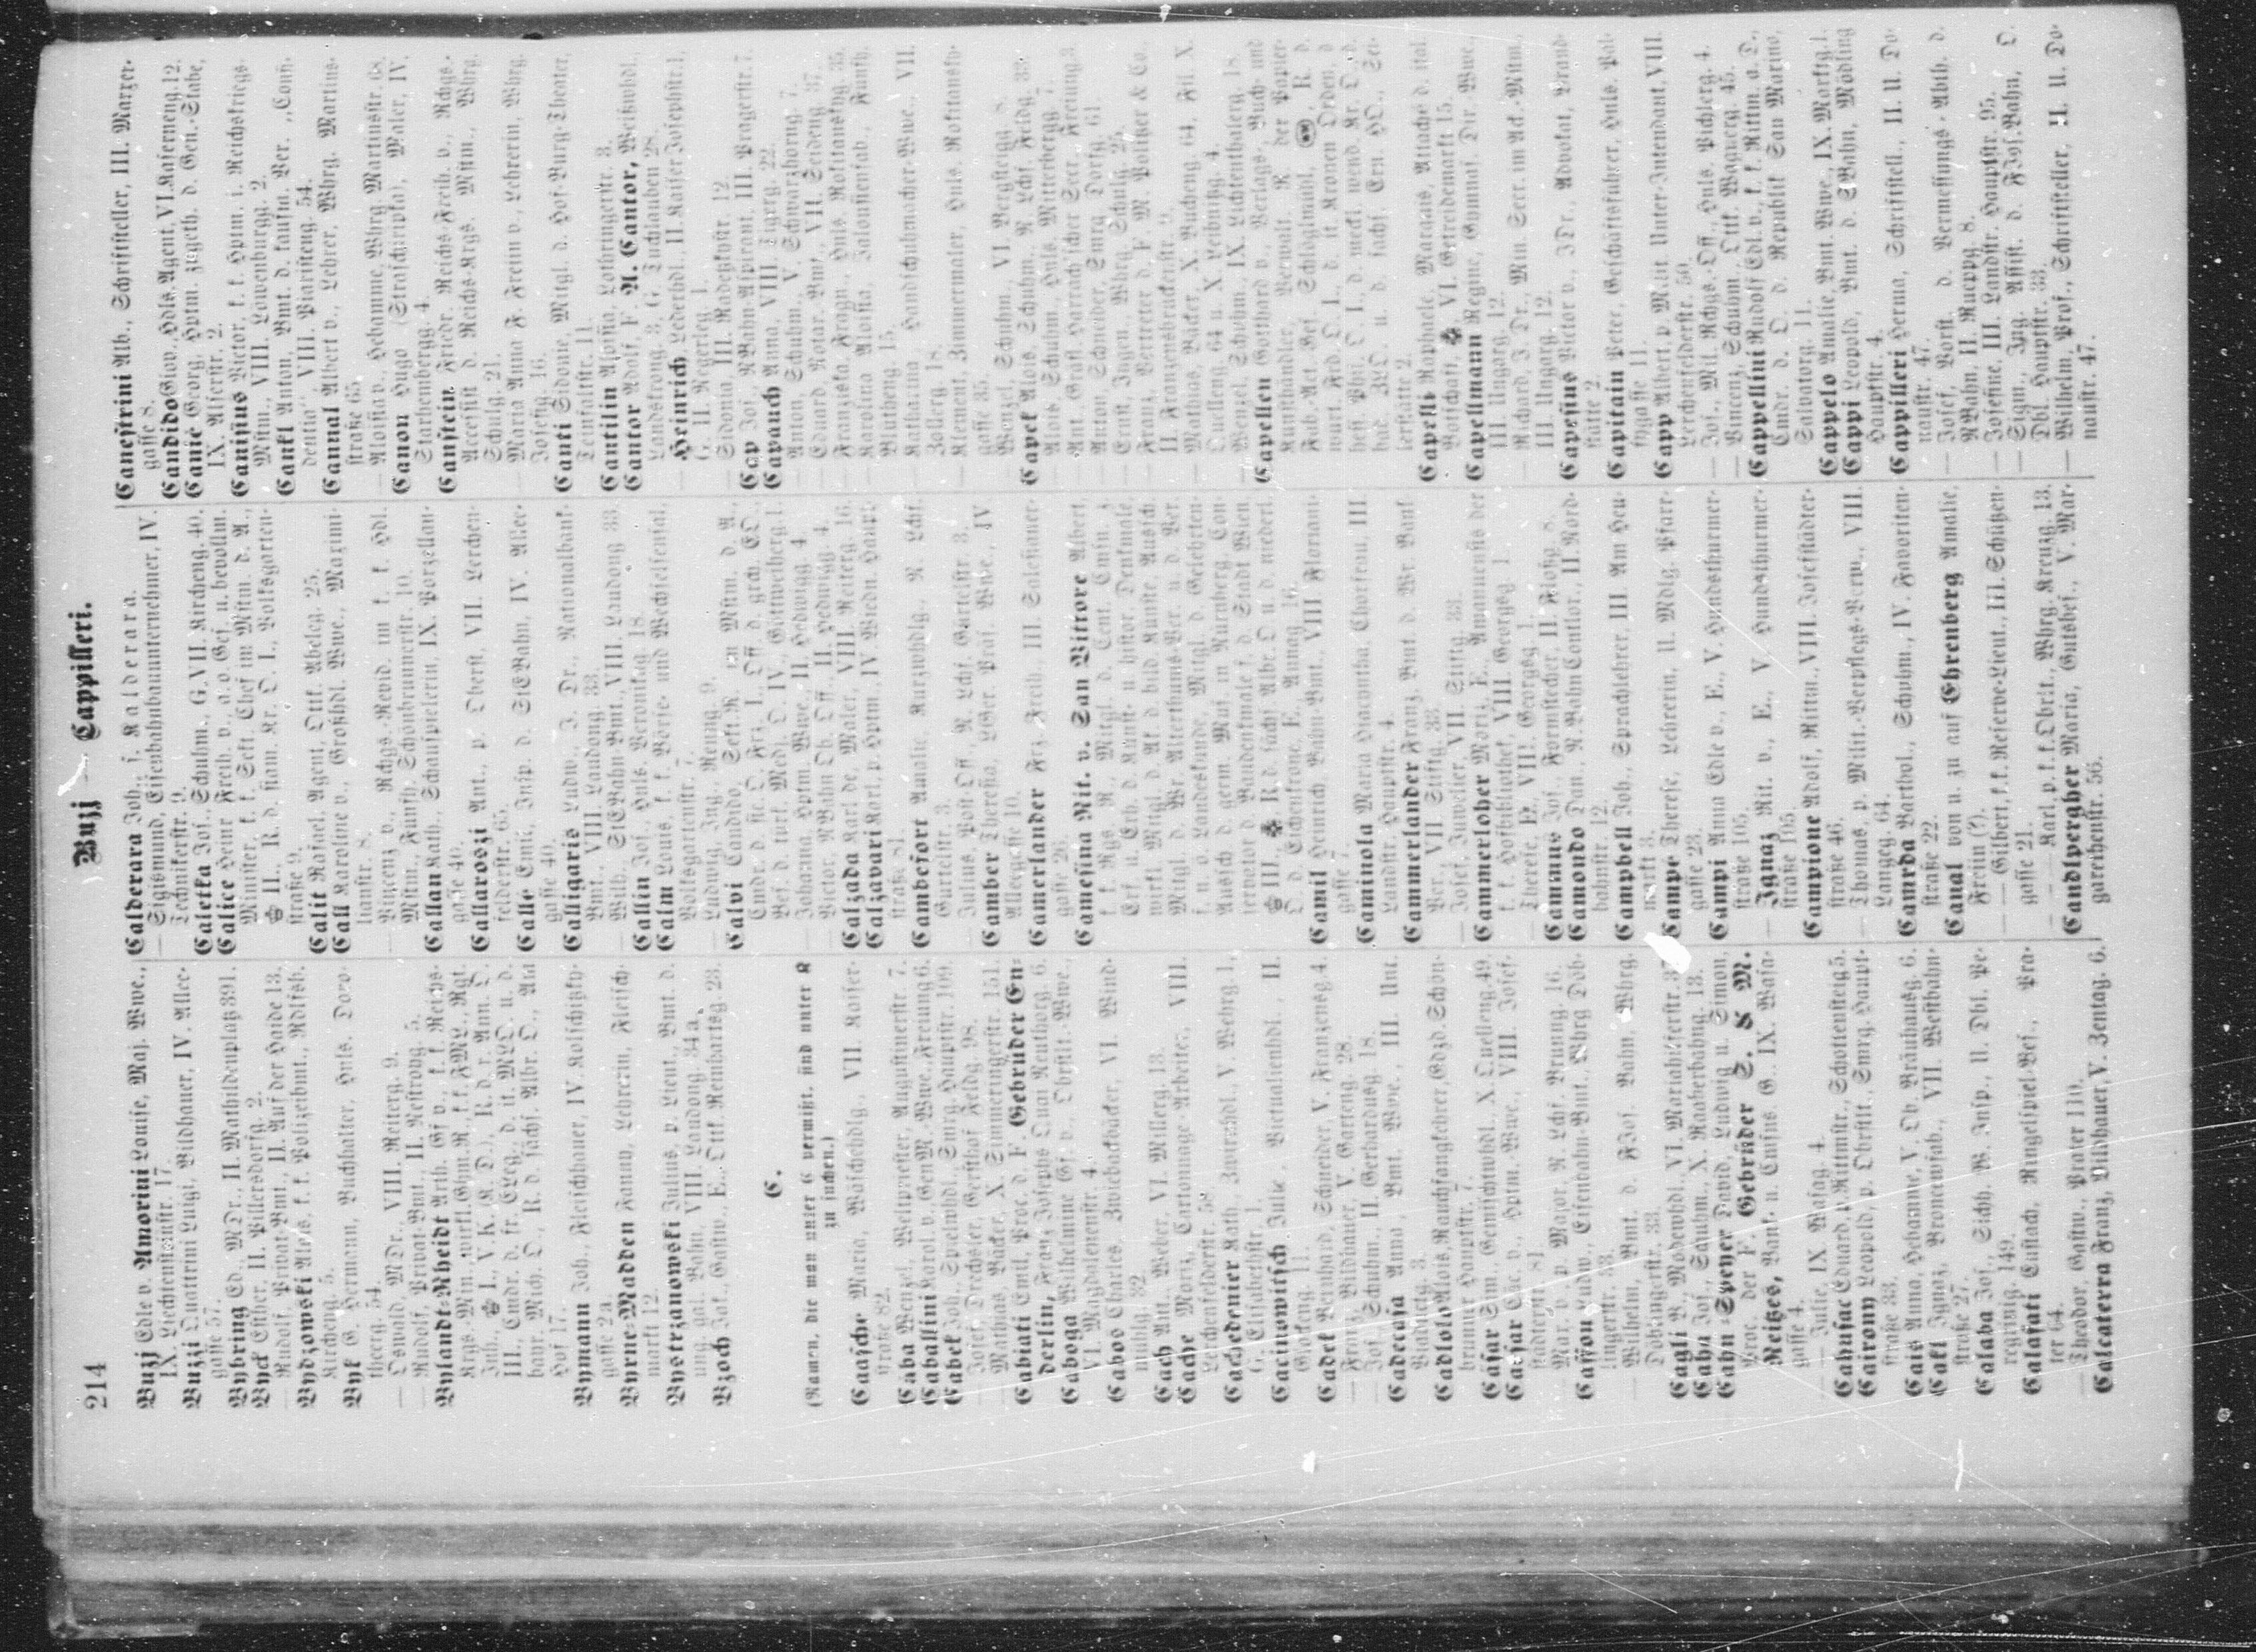 214
Buzj — Cappilleri.
Buzj Edle v. Amorini Louise, Maj. Wwe.,
IX. Liechtensteinstr. 17.
Buzzi Quattrini Luigi, Bildhauer, IV. Allee-
gasse 57.
Bybring Ed., MDr., II. Mathildenplatz 391.
Byck Esther, II. Pillersdorfg. 2.
— Rudolf, Privat-Bmt., II. Auf der Haide 13.
Bydzowski Alois, k. k. Polizeibmt., Rdlfsh.
Kircheng. 5.
Byk G. Hermann, Buchhalter, Hnls. Doro-
therg. 34.
— Oswald, MDr., VIII. Reiterg. 9.
— Rudolf, Privat-Bmt., II. Nestroyg. 5.
Bylandt-Rheidt Arth. Gf v., k. k. Reichs-
Hof 17.
Bymann Joh., Fleischhauer, IV. Kolschitzky-
gasse 2a.
Byrne-Madden Fanny, Lehrerin, Fleisch-
markt 12.
Bystrzanowski Julius, p. Lieut., Bmt. d.
ung. gal. Bahn, VIII. Laudong. 34a.
Bzoch Jak., Gastw., E., Ott. Reinhartsg. 23.
C.
(Namen, die man unter C vermißt, sind unter K
zu suchen.)
Caasche Marie, Wäschehdlg., VII. Kaiser-
straße 82.
Caba Wenzel, Weltpriester, Augustinerstr. 7.
Caballini Karol. v., GenM. Wwe., Freiung 6.
Cabek Joh., Spielwhdl., Smrg. Hauptstr. 109.
— Josef, Drechsler, Gersthof Feldg. 98.
— Mathias, Bäcker, X. Simmeringerstr. 151.
Cabiati Emil, Proc. d. F. Gebrüder En-
derlin, Franz Josephs Quai Neuthorg. 6.
Caboga Wilhelmine Gf. v., Obstlt.-Wwe.,
VI. Magdalenenstr. 4.
Cabos Charles, Zwiebackbäcker, VI. Wind-
mühlg. 32.
Cach Ant., Weber, VI. Millerg. 13.
Cache Marx, Cartonnage-Arbeiter, VIII.
Lerchenfelderstr. 58.
Cachedener Kath., Zwirnhdl., V. Wehrg. 1.
G. Elisabethstr. 1.
Cacinowitsch Julie, Victualienhdl., II.
Glockeng. 11.
Cadek Bernhard, Schneider, V. Franzensg. 4.
— Franz, Bildhauer, V. Garteng. 28.
— Jos., Schuhm., II. Gerhardusg. 18.
Cadecasa Anna, Bmt. Wwe., III. Unt.
Viaductg. 3.
Cadlolo Alois, Rauchfangkehrer, Gdzd. Schön-
brunner Hauptstr. 7.
Cäsar Sim., Gemischtwhdl., X. Quelleng. 49.
Caesar Luc. v., Hptm. Wwe., VIII. Josef-
städterstr. 81.
Cagli B., Modewhdl., VI. Mariahilferstr. 37.
Cahn Jos., Schuhm., X. Raaberbahng. 13.
Cahn-Speyer David, Ludwig u. Simon,
Proc. der F. Gebrüder S. & M.
Reitzes, Bank- u. Cassen G., IX. Wasa-
gasse 4.
— Julie, IX. Wasag. 4.
Cahusac Eduard, p. Rittmstr., Schottensteig 5.
Cairomy Leopold, p. Obristlt., Smrg. Haupt-
straße 33.
Cais Anna, Hebamme, V. Ob. Bräuhausg. 6.
Cakl Ignaz, Broncewfab., VII. Westbahn-
straße 27.
Calaba Jos., Sich. W. Insp., U. Dbl. Pe-
regring. 149.
Calafati Eustach, Ringelspiel-Bes., Pra-
ter 64.
— Theodor, Gastw., Prater 110.
Calcaterra Franz, Bildhauer, V. Zentag. 6.
Calderara Joh. s. Kalderara.
— Sigismund, Eisenbahnbauunternehmer, IV.
Technikerstr. 9.
Caletka Jos., Schuhm., G. VII. Kircheng. 40.
Calice Heinr. Freih. v., a. o. Ges. u. bevollm.
Minister, k. k. Sekt. Chef im Mstm. d. A.,
straße 9.
Calit Rafael, Agent, Ottk. Abeleg. 25.
Call Karoline v., Großhdl. Wwe., Maximi-
lianstr. 8.
— Vincenz v., Rchgs.-Revid. im k. k. Hdl.
Mstm., Fünfh. Schönbrunnerstr. 10.
Callan Kath., Schauspielerin, IX. Porzellan-
gasse 40.
Callaroszi Ant., p. Oberst, VII. Lerchen-
felderstr. 65.
Calle Emil, Insp. d. StEBahn, IV. Allee-
gasse 40.
Calligaris Ludw., J. Dr., Nationalbank-
Bmt., VIII. Laudong. 33.
— Wilh., StEBahn Bmt., VIII. Laudong 33.
Callin Jos., Hnls. Veronikag. 18.
Calm Louis, k. k. Börse- und Wechselsensal,
Volksgartenstr. 7.
— Ludwig, Ing., Renng. 9.
Calvi Candido, Sekt. R. im Mstm. d. A.,
— Johanna, Hptm. Wwe., II. Hedwigg. 4.
— Victor, NBahn Ob. Off., II. Hedwigg. 4.
Calzada Karl de, Maler, VIII. Reiterg. 16.
Calzavari Karl, p. Hptm., IV. Wiedn. Haupt-
straße 81.
Cambefort Amalie, Kurzwhdlg., R. Lchf.
Gärtelstr. 3.
— Julius, Post Off., R. Lchf. Gärtelstr. 3.
Camber Theresia, LGer. Präs. Wwe., IV.
Alleegasse 10.
Camerlander Frz. Freih., III. Salesianer-
gasse 26.
Camesina Rit. v. San Vittore Albert,
Camil Heinrich, Bahn-Bmt., VIII. Floriani-
gasse 7.
Caminola Maria Hyacintha, Chorfrau, III.
Landstr. Hauptstr. 4.
Cammerlander Franz, Bmt. d. Wr. Bank
Ver., VII. Stiftg. 33.
— Josef, Juwelier, VII. Stiftg. 33.
Cammerloher Moriz, E., Amanuensis der
k. k. Hofbibliothek, VIII. Georgsg. 1.
— Therese, E., VIII. Georgsg. 1.
Camnus Jos., Formstecher, II. Floßg. 8.
Camondo Dan., N. Bahn Contlor, II. Nord-
bahnstr. 12.
Campbell Joh., Sprachlehrer, III. Am Heu-
markt 3.
Campe Therese, Lehrerin, U. Mdlg. Pfarr-
gasse 23.
Campi Anna Edle v., E., V. Hundsthurmer-
straße 105.
— Ignaz Rit. v., E., V. Hundsthurmer-
straße 105.
Campione Adolf, Rittm., VIII. Josefstädter-
straße 46.
— Thomas, p. Milit.-Verpflegs-Verw., VIII.
Langeg. 64.
Camrda Barthol., Schuhm., IV. Favoriten-
straße 22.
Canal von u. zu auf Ehrenberg Amalie,
Freiin (?).
— Gilbert, k. k. Reserve-Lieut., III. Schützen-
gasse 21.
— Karl, p. k. k. Obrlt., Whrg. Kreuzg. 13.
Candlpergher Maria, Gutsbes., V. Mar-
garethenstr. 56.
Canestrini Alb., Schriftsteller, III. Marxer-
gasse 8.
Candido Giov., Hdls. Agent, VI. Kaserneng. 12.
Canić Georg, Hptm. zugeth. d. Gen.-Stabe,
IX. Alserstr. 2.
Canisius Victor, k. k. Hptm. i. Reichskriegs-
Mstm., VIII. Löwenburgg. 2.
Cankl Anton, Bmt. d. kaufm. Ver. „Confi-
dentia“, VIII. Piaristeng. 54.
Cannal Albert v., Lehrer, Whrg. Martins-
straße 65.
— Aloisia v., Hebamme, Whrg. Martinsstr. 68.
Canon Hugo (Straschiripka), Maler, IV.
Starhembergg. 4.
Canstein Friedr. Reichs-Freih. v., Rchgs.-
Accessist d. Reichs-Krgs. Mstm., Whrg.
Schulg. 21.
— Maria Anna F. Freiin v., Lehrerin, Whrg.
Josefig. 16.
Canti Sidonie, Mitgl. d. Hof-Burg-Theater,
Teinfaltstr. 11.
Cantilin Aloisia, Lothringerstr. 3.
Cantor Adolf, F. A. Cantor, Weißwhdl.,
Landskrong. 3, G. Tuchlauben 28.
— Heinrich, Lederhdl., II. Kaiser Josephstr. 1,
G. II. Negerleg. 1.
— Sidonia, III. Radetzkystr. 12.
Cap Jos., NBahn-Aspirant, III. Pragerstr. 7.
Capauch Anna, VIII. Tigerg. 22.
— Anton, Schuhm., V. Schwarzhorng. 7.
— Eduard, Notar. Bmt., VII. Seideng. 37.
— Franziska, Fragn., Hnls. Rositansyg. 35.
— Karolina Aloisia, Jalousienfab., Fünfh.
Blütheng. 15.
— Katharina, Handschuhmacher-Wwe., VII.
Zollerg. 18.
— Klement, Zimmermaler, Hnls. Rokitansky-
gasse 35.
— Wenzl, Schuhm., VI. Bergsteigg. 8.
Capek Alois, Schuhm., R. Lchf. Feldg. 33.
— Alois, Schuhm., Hnls. Mitterbergg. 7.
— Ant., Gräfl. Harrach'scher Secr., Freiung 3.
— Anton, Schneider, Smrg. Dorfg. 61.
— Ernst, Ingen., Whrg. Schulg. 25.
— Franz, Vertreter d. F. M. Politzer & Co.,
II. Franzensbrückenstr. 9.
— Mathias, Bäcker, X. Bucheng. 64, Fil. X.
Quelleng. 64 u. X. Leibnitzg. 4.
— Wenzel, Schuhm., IX. Lichtenthalerg. 18.
Capellen Gotthard v., Verlags-, Buch- und
Kunsthändler, Verwalt. R. der Papier-
Fab. Act. Ges. Schlöglmühl,
Capelli Raphaele Marquis, Attaché d. ital.
Botschaft, VI. Getreidemarkt 15.
Capellmann Regine, Gymnas. Dir. Wwe.,
III. Ungarg. 12.
— Richard, J. Dr., Min. Secr. im Ack.-Mstm.,
III. Ungarg. 12.
Capesius Victor v., JDr., Advokat, Brand-
stätte 2.
Capitain Peter, Geschäftsführer, Hnls. Pal-
fygasse 11.
Capp Albert, p. Milit. Unter-Intendant, VIII.
Lerchenfelderstr. 50.
— Jos., Mil. Rchgs.-Off., Hnls. Pichlerg. 4.
— Vincenz, Schuhm., Ottk. Wagnerg. 45.
Cappellini Rudolf Edl. v., k. k. Rittm. a. D.,
Cmdr. d. O. d. Republik San Marino,
Salvatorg. 11.
Cappelo Amalie, Bmt. Wwe., IX. Maríag. 1.
Cappi Leopold, Bmt. d. SBahn, Mödling
Hauptstr. 4.
Cappilleri Herma, Schriftstell., U. U. Do-
naustr. 47.
— Josef, Vorst. d. Vermessungs-Abth. d.
NBahn, II. Rueppg. 8.
— Josefine, III. Landstr. Hauptstr. 95.
— Sigm., Ing. Assist. d. FJos. Bahn, O.
Dbl. Hauptstr. 33.
— Wilhelm, Prof., Schriftsteller, U. U. Do-
naustr. 47.